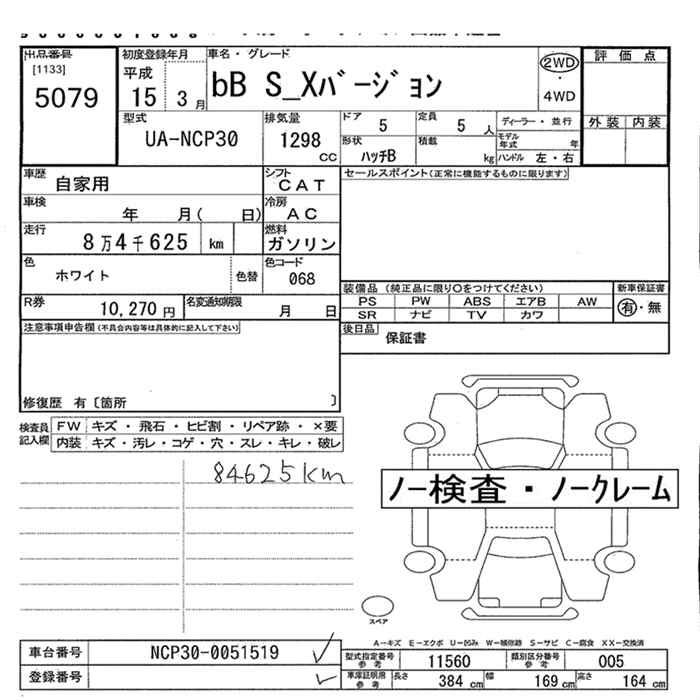 出品番号
[1133]
5079
初度登録年月
平成
15 3月
車名・グレード
bB S_Xバージョン
2WD
・
4WD
評価点
外装 内装
型式
UA-NCP30
排気量
1298
CC
ドア 5
定員 5 人
形状
ハッチB
積載
kg
ディーラー・並行
モデル年式 年
ハンドル 左・右
車歴
自家用
シフト
CAT
セールスポイント(正常に機能するものに限ります)
車検
年 月( 日)
冷房
AC
走行
8万4千625 km
燃料
ガソリン
色
ホワイト
色替
色コード
068
装備品 (純正品に限り○をつけてください)
新車保証書
PS PW ABS エアB AW
SR ナビ TV カワ
有・無
R券
10,270 円
名変通知期限
月 日
後日品
保証書
注意事項申告欄(不具合内容等は具体的に記入して下さい)
修復歴 有〔箇所 〕
検査員記入欄
FW キズ・飛石・ヒビ割・リペア跡・×要
内装 キズ・汚レ・コゲ・穴・スレ・キレ・破レ
84625km
ノー検査・ノークレーム
スペア
A-キズ E-エクボ U-凹み W-補修跡 S-サビ C-腐食 XX-交換済
車台番号
NCP30-0051519
登録番号
型式指定番号参考
11560
類別区分番号参考
005
車庫証明用参考
長さ 384 cm
幅 169 cm
高さ 164 cm